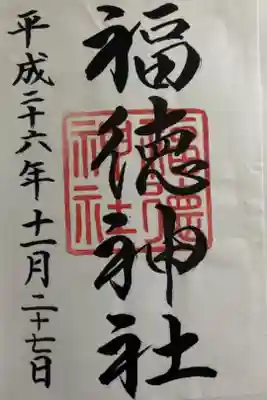 福徳神社
平成二十六年十一月二十七日
福徳神社